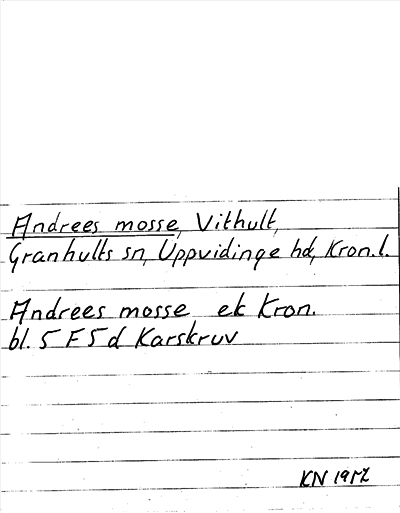 Andrees mosse, Vithult,
Granhults sn, Uppvidinge hd, Kron.l.
Andrees mosse ek Kron.
bl. 5 F 5 d Karskruv
KN